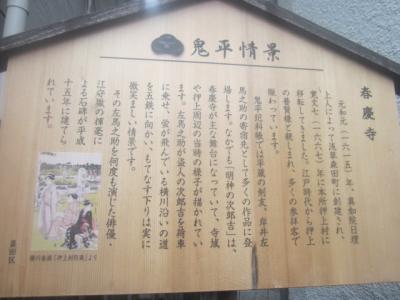 鬼平情景
春慶寺
元和元(一六一五)年、真如院日理
上人によって浅草森田町に創建され、
寛文七(一六六七)年に本所押上村に
移転してきました。江戸時代から押上
の普賢様と親しまれ、多くの参拝客で
賑わっています。
鬼平犯科帳では平蔵の剣友、岸井左
馬之助の寄宿先として多くの作品に登
場します。なかでも「明神の次郎吉」は、
春慶寺が主な舞台になっていて、寺域
や押上周辺の当時の様子が描かれてい
ます。左馬之助が盗人の次郎吉を荷車
に乗せ、蛍が飛んでいる横川沿いの道
を五鉄に向かい、もてなす下りは実に
微笑ましい情景です。
その左馬之助を何度も演じた俳優・
江守徹の揮毫に
よる石碑が平成
十五年に建てら
れています。
「押上村行楽」より
墨田区